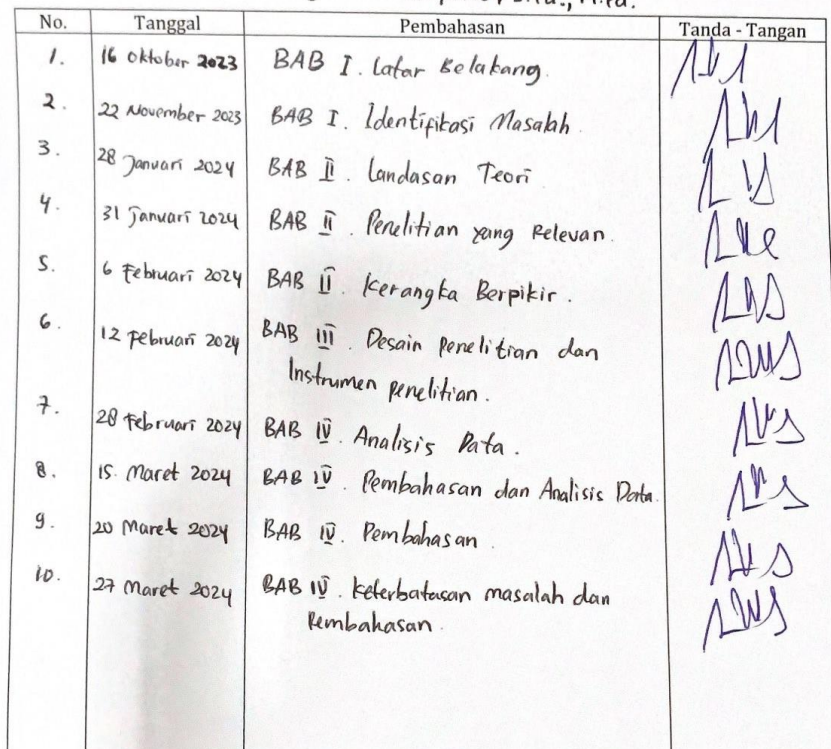 No. Tanggal Pembahasan Tanda - Tangan
1. 16 Oktober 2023 BAB I. Latar Belakang.
2. 22 November 2023 BAB I. Identifikasi Masalah.
3. 28 Januari 2024 BAB II. Landasan Teori
4. 31 Januari 2024 BAB II. Penelitian yang Relevan.
5. 6 Februari 2024 BAB II. Kerangka Berpikir.
6. 12 Februari 2024 BAB III. Desain penelitian dan
Instrumen penelitian.
7. 28 Februari 2024 BAB IV. Analisis Data.
8. 15. Maret 2024 BAB IV. Pembahasan dan Analisis Data.
9. 20 Maret 2024 BAB IV. Pembahasan.
10. 27 Maret 2024 BAB IV. Keterbatasan masalah dan
Pembahasan.